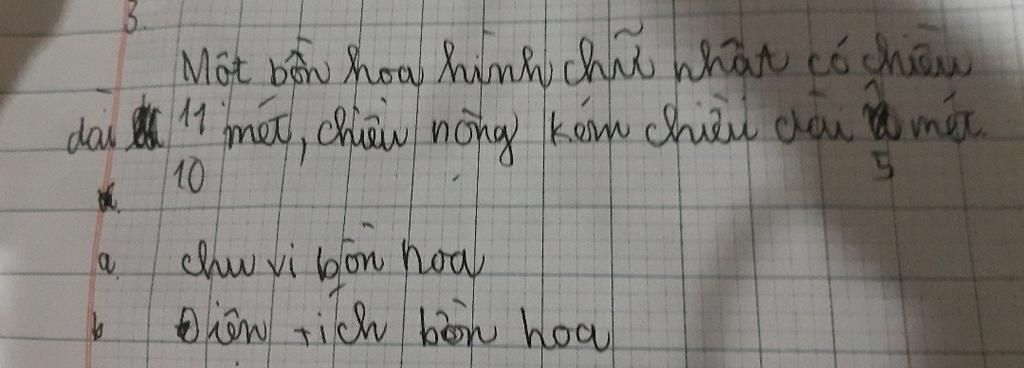 3.
Một bồn hoa hình chữ nhật có chiều
dài 11 mét, chiều nông kém chiều dài mét.
10 5
a chu vi bồn hoa
b Diên tích bồn hoa